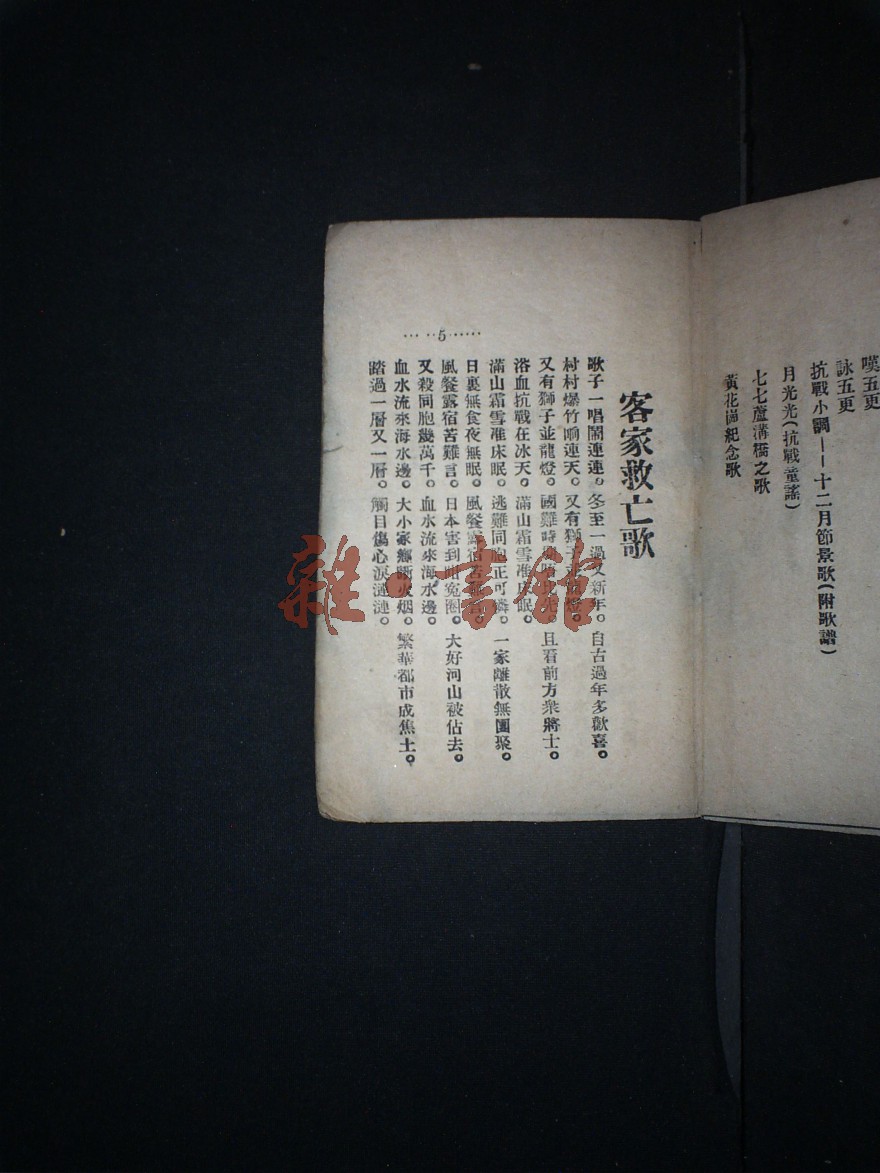 嘆五更
詠五更
抗戰小調——十二月節景歌(附歌譜)
月光光(抗戰童謠)
七七蘆溝橋之歌
黃花崗紀念歌
客家救亡歌
歌子一唱鬧連連。冬至一過又新年。自古過年多歡喜。
村村爆竹响連天。又有獅子並龍燈。
又有獅子並龍燈。國難時期。且看前方衆將士。
浴血抗戰在冰天。滿山霜雪准床眠。
滿山霜雪准床眠。逃難同胞正可憐。一家離散無團聚。
日裏無食夜無眠。風餐露宿苦難言。
風餐露宿苦難言。日本害到咁冤圈。大好河山被佔去。
又殺同胞幾萬千。血水流來海水邊。
血水流來海水邊。大小家鄉斷火烟。繁華都市成焦土。
踏過一層又一層。觸目傷心淚漣漣。
5
雜·書館